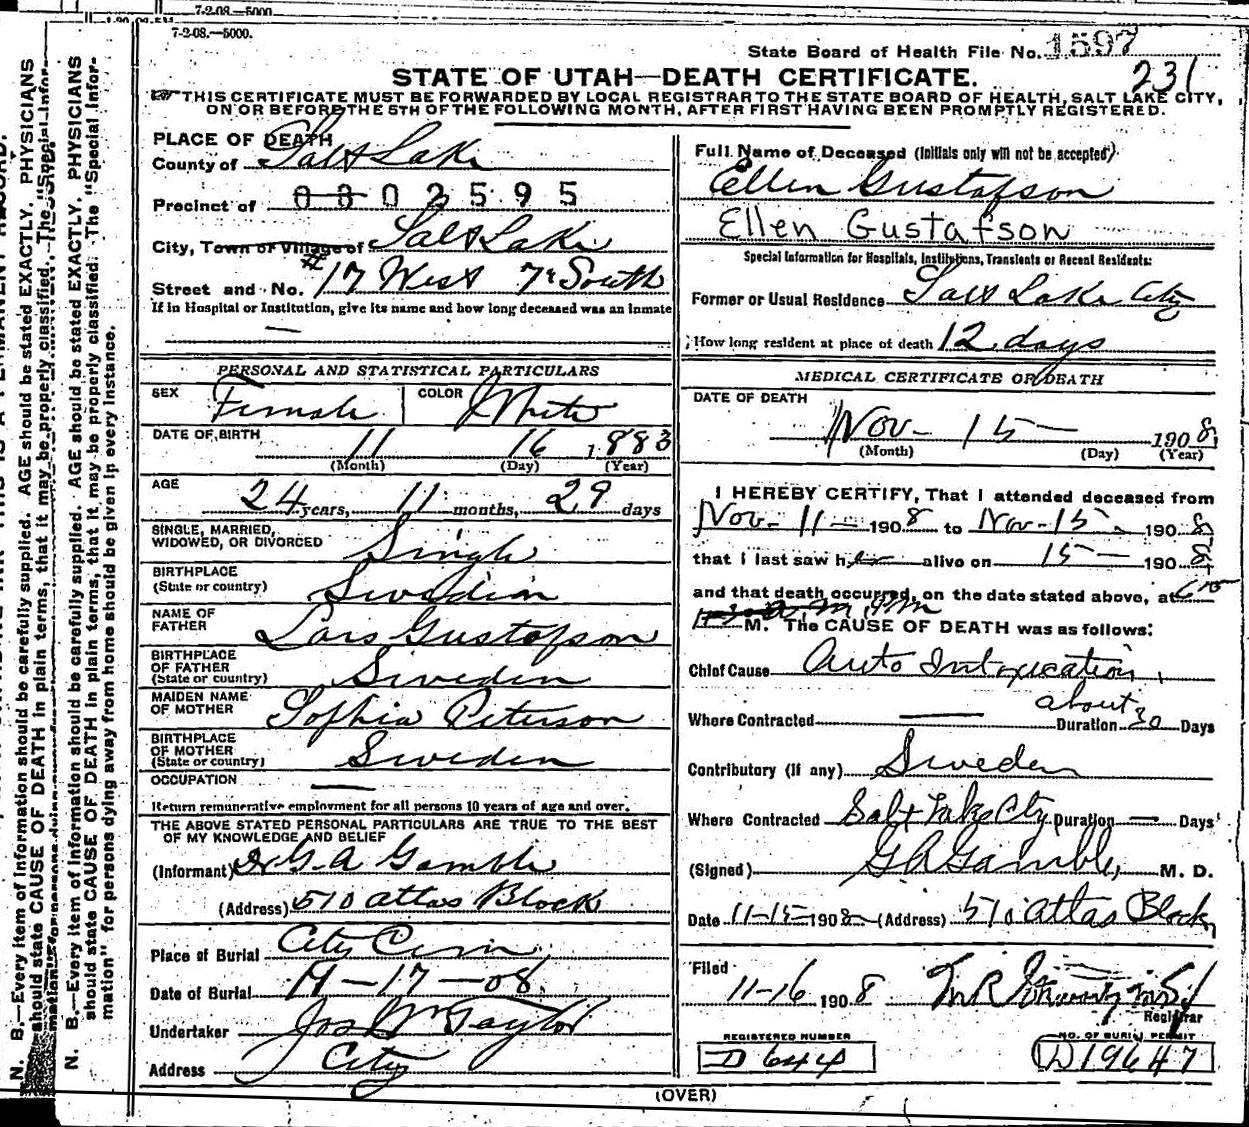 7-2-08.—5000.
7-2-08.—5000.
State Board of Health File No. 1597
231
STATE OF UTAH—DEATH CERTIFICATE.
THIS CERTIFICATE MUST BE FORWARDED BY LOCAL REGISTRAR TO THE STATE BOARD OF HEALTH, SALT LAKE CITY,
ON OR BEFORE THE 5TH OF THE FOLLOWING MONTH, AFTER FIRST HAVING BEEN PROMPTLY REGISTERED.
PLACE OF DEATH
County of Salt Lake
Precinct of 0802595
City, Town or Village of Salt Lake
Street and No. #17 West 7th South
If in Hospital or Institution, give its name and how long deceased was an inmate
—
PERSONAL AND STATISTICAL PARTICULARS
SEX Female COLOR White
DATE OF BIRTH 11 16 1883
(Month) (Day) (Year)
AGE
24 years, 11 months, 29 days
SINGLE, MARRIED,
WIDOWED, OR DIVORCED Single
BIRTHPLACE
(State or country) Sweden
NAME OF
FATHER Lars Gustafson
BIRTHPLACE
OF FATHER
(State or country) Sweden
MAIDEN NAME
OF MOTHER Sophia Peterson
BIRTHPLACE
OF MOTHER
(State or country) Sweden
OCCUPATION —
Return remunerative employment for all persons 10 years of age and over.
THE ABOVE STATED PERSONAL PARTICULARS ARE TRUE TO THE BEST
OF MY KNOWLEDGE AND BELIEF
(Informant) Dr G.A Gamble
(Address) 510 Atlas Block
Place of Burial City Cem
Date of Burial 11-17-08
Undertaker Jos Wm Taylor
Address City
Full Name of Deceased (Initials only will not be accepted)
Ellen Gustafson
Ellen Gustafson
Special Information for Hospitals, Institutions, Transients or Recent Residents:
Former or Usual Residence Salt Lake City
How long resident at place of death 12 days
MEDICAL CERTIFICATE OF DEATH
DATE OF DEATH
Nov- 15— 1908
(Month) (Day) (Year)
I HEREBY CERTIFY, That I attended deceased from
Nov- 11— 1908 to Nov-15- 1908
that I last saw her alive on 15— 1908
and that death occurred, on the date stated above, at
M. The CAUSE OF DEATH was as follows:
Chief Cause Auto Intoxication,
about
Where Contracted — Duration 30 Days
Contributory (if any) Sweden
Where Contracted Salt Lake City Duration — Days
(Signed) GA Gamble, M. D.
Date 11-15-1908 (Address) 510 Atlas Block
Filed
11-16 1908
Registrar
REGISTERED NUMBER
D 644
NO. OF BURIAL PERMIT
D19647
(OVER)
N. B.—Every item of information should be carefully supplied. AGE should be stated EXACTLY. PHYSICIANS
should state CAUSE OF DEATH in plain terms, that it may be properly classified. The "Special Infor-
mation" for persons dying away from home should be given in every instance.
N. B.—Every item of information should be carefully supplied. AGE should be stated EXACTLY. PHYSICIANS
should state CAUSE OF DEATH in plain terms, that it may be properly classified. The "Special Infor-